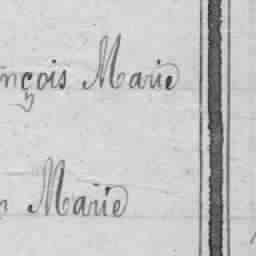 nçois Marie
Marie